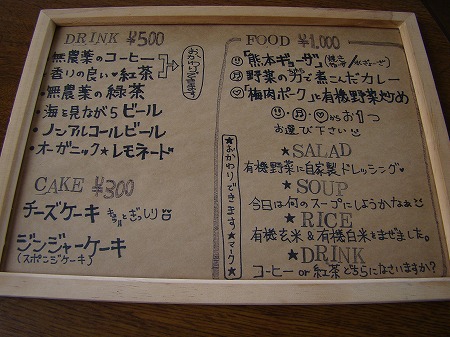 DRINK ¥500
・無農薬のコーヒー
・香りの良い♥紅茶
おかわりできます
・無農薬の緑茶
・海を見ながらビール
・ノンアルコールビール
・オーガニック★レモネード
CAKE ¥300
チーズケーキ ぎっしり
ジンジャーケーキ
(スポンジケーキ)
FOOD ¥1,000
「熊本ギョーザ」
野菜の煮こんだカレー
♡「梅肉ポーク」と有機野菜炒め
☺・♬・♡からお1つ
お選び下さい☺
★おかわりできます★マーク★
★SALAD
有機野菜に自家製ドレッシング♥
★SOUP
今日は何のスープにしようかなぁ☺
★RICE
有機玄米&有機白米をまぜました。
★DRINK
コーヒー or 紅茶どちらになさいますか?